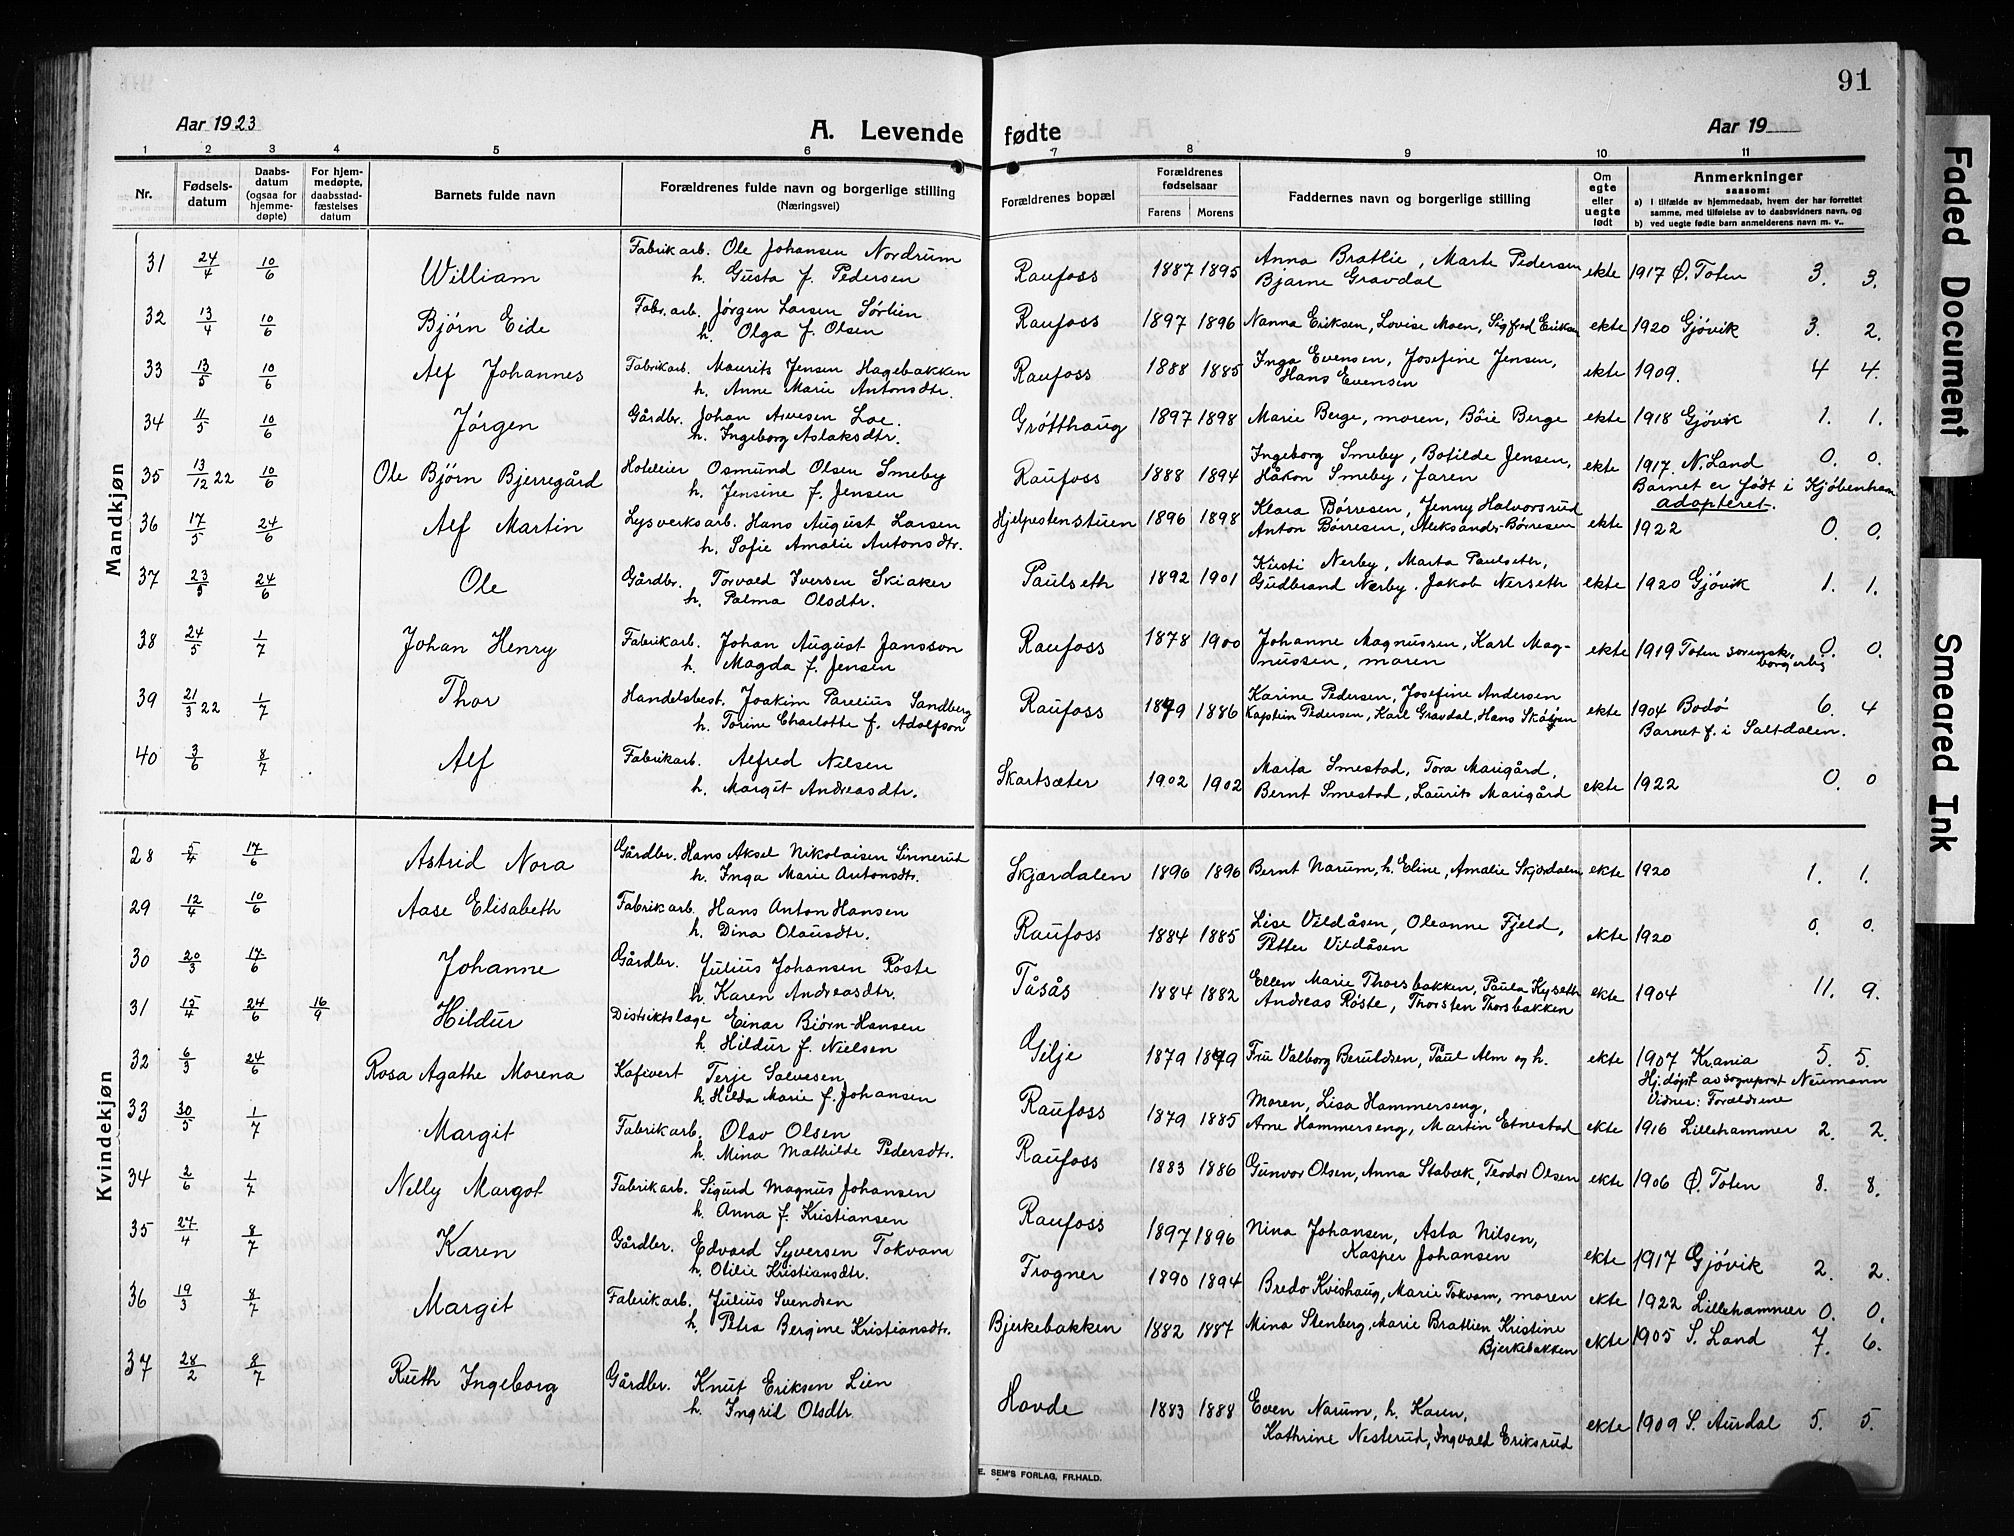 91
Aar 1923
A. Levende fødte
Aar 19
1 2 3 4 5 6 7 8 9 10 11
Nr.
Fødselsdatum
Daabsdatum (ogsaa for hjemmedøpte)
For hjemmedøpte, daabsstadfæstelses datum
Barnets fulde navn
Forældrenes fulde navn og borgerlige stilling (Næringsvei)
Forældrenes bopæl
Forældrenes fødselsaar
Farens Morens
Faddernes navn og borgerlige stilling
Om egte eller uegte født
Anmerkninger
saasom:
a) I tilfælde av hjemmedaab, hvem der har forrettet samme, med tilføielse av to daabsvidners navn, og
b) ved uegte fødte barn anmelderens navn m. v..
Mandkjøn
31 24/4 10/6 William Fabrikarb. Ole Johansen Nordrum Raufoss 1887 1895 Anna Bratlie, Marte Pedersen ekte 1917 Ø. Toten 3. 3.
h. Gusta f. Pedersen Bjarne Gravdal
32 13/4 10/6 Bjørn Eide Fabr.arb. Jørgen Larsen Sørlien Raufoss 1897 1896 Nanna Eriksen, Lovise Moen, Sigfred Eriksen ekte 1920 Gjøvik 3. 2.
h. Olga f. Olsen
33 13/5 10/6 Alf Johannes Fabrikarb. Maurits Jensen Hagebakken Raufoss 1888 1885 Inga Evensen, Josefine Jensen, ekte 1909. 4 4.
h. Anne Marie Antonsdtr. Hans Evensen
34 11/5 10/6 Jørgen Gårdbr. Johan Arvesen Loe. Grøtthaug 1897 1898 Marie Berge, moren, Böie Berge ekte 1918 Gjøvik 1. 1.
h. Ingeborg Aslaksdtr.
35 13/12 22 10/6 Ole Bjørn Bjerregård Hoteleier Osmund Olsen Smeby Raufoss 1888 1894 Ingeborg Smeby, Botilde Jensen, ekte 1917. N. Land 0. 0.
h. Jensine f. Jensen Håkon Smeby, faren Barnet er født i Kjøbenhavn
adopteret.
36 17/5 24/6 Alf Martin Lysverksarb. Hans August Larsen Hjelpestenstuen 1896 1898 Klara Børresen, Jenny Halvorsrud ekte 1922 0. 0.
h. Sofie Amalie Antonsdtr. Anton Børresen, Aleksander Børresen
37 23/5 24/6 Ole Gårdbr. Torvald Iversen Skiaker Paulseth 1892 1901 Kirsti Nerby, Marta Paulseth, ekte 1920 Gjøvik 1. 1.
h. Palma Olsdtr. Gudbrand Nerby. Jakob Nerseth
38 24/5 1/7 Johan Henry Fabrikarb. Johan August Jansson Raufoss 1878 1900 Johanne Magnussen, Karl Mag- ekte 1919 Toten sorensk. 0. 0.
h. Magda f. Jensen nussen, moren borgerlig
39 21/3 22 1/7 Thor Handelsbest. Joakim Parelius Sandberg Raufoss 1879 1886 Karine Pedersen, Josefine Andersen ekte 1904 Bodø 6. 4
h. Torine Charlotte f. Adolfson Kaptein Pedersen, Karl Gravdal, Hans Barnet f. i Saltdalen.
40 3/6 8/7 Alf Fabrikarb. Alfred Nilsen Skartsæter 1902 1902 Marta Smestad, Tora Marigård, ekte 1922 0. 0
h. Margit Andreasdtr. Bernt Smestad, Laurits Marigård
Kvindekjøn
28 5/4 17/6 Astrid Nora Gårdbr. Hans Aksel Nikolaisen Sinnerud Skjærdalen 1896 1896 Bernt Narum, h. Eline, Amalie Skjærdalen ekte 1920 1. 1.
h. Inga Marie Antonsdtr.
29 12/4 10/6 Aase Elisabeth Fabrikarb. Hans Anton Hansen Raufoss 1884 1885 Lise Vildåsen, Oleanne Fjeld, ekte 1920 0. 0.
h. Dina Olausdtr. Petter Vildåsen
30 20/3 17/6 Johanne Gårdbr. Julius Johansen Røste Tåsås 1884 1882 Ellen Marie Thorsbakken, Paula Kyseth ekte 1904 11. 9.
h. Karen Andreasdtr. Andreas Røste, Thorsten Thorsbakken
31 15/4 24/6 16/9 Hildur Distriktslæge Einar Bjørn-Hansen Gilje 1879 1879 Fru Valborg Beruldsen, Paul Alm og h. ekte 1907 Kr.ania 5. 5.
h. Hildur f. Nielsen Hj.døpt av sogneprest Neumann
Vidner: Forældrene
32 6/3 24/6 Rosa Agathe Morena Kafévert Terje Salvesen Raufoss 1879 1885 Moren, Lisa Hammerseng, ekte 1916 Lillehammer 2. 2.
h. Hilda Marie f. Johansen Arne Hammerseng, Martin Etnestad
33 30/5 1/7 Margit Fabrikarb. Olav Olsen Raufoss 1883 1886 Gunvor Olsen, Anna Stabæk, Teodor Olsen ekte 1906 Ø. Toten 8. 8.
h. Mina Mathilde Pedersdtr.
34 2/6 1/7 Nelly Margot Fabrikarb. Sigurd Magnus Johansen Raufoss 1897 1896 Nina Johansen, Asta Nilsen, ekte 1917 Gjøvik 2. 2.
h. Anna f. Kristiansen Kasper Johansen
35 27/4 8/7 Karen Gårdbr. Edvard Syversen Tokvam Trogner 1890 1894 Bredo Kvishaug, Marie Tokvam, moren ekte 1922 Lillehammer 0. 0.
h. Otilie Kristiansdtr.
36 19/3 8/7 Margit Fabrikarb. Julius Svendsen Bjerkebakken 1882 1887 Mina Stenberg, Marie Bratlien, Kristine ekte 1905 S. Land 7. 6.
h. Petra Bergine Kristiansdtr. Bjerkebakken
37 28/2 8/7 Ruth Ingeborg Gårdbr. Knut Eriksen Lien Hovde 1883 1888 Even Narum, h. Karen, ekte 1909 S. Aurdal 5. 5.
h. Ingrid Olsdtr. Kathrine Nesterud, Ingvald Eriksrud
E. SEM'S FORLAG, FR.HALD.
Faded Document
Smeared Ink